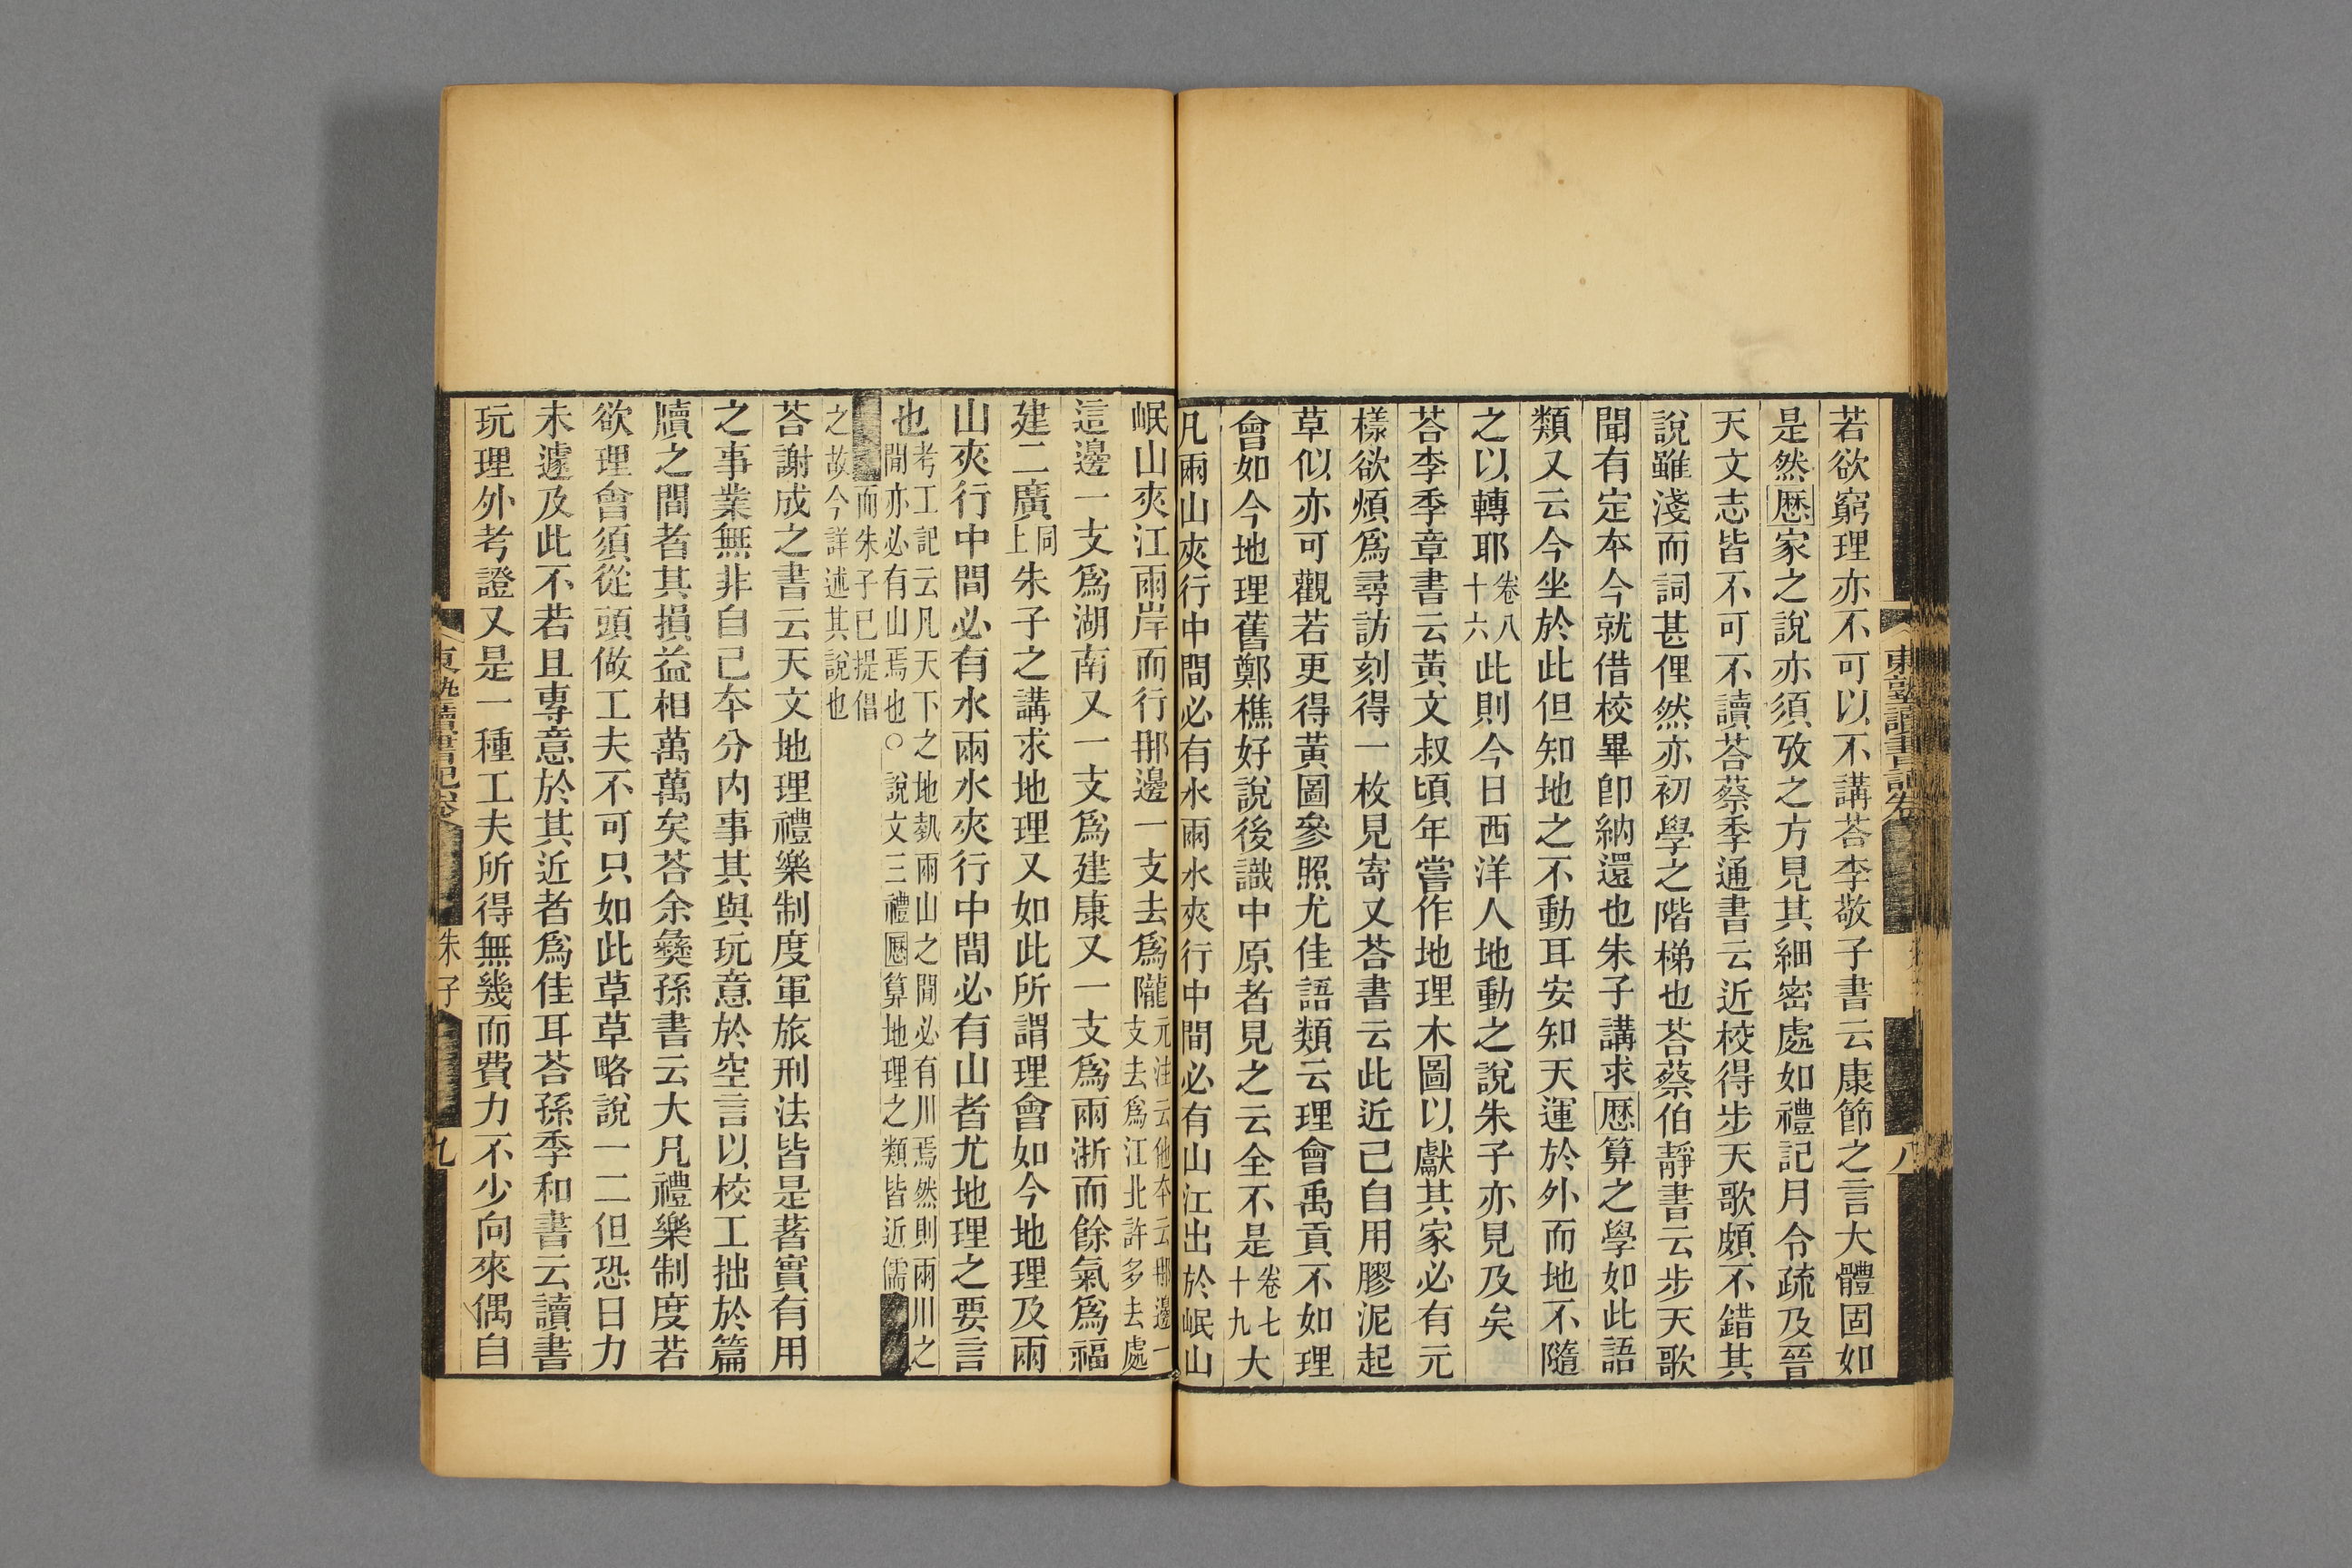 若欲窮理亦不可以不講荅李敬子書云康節之言大體固如
是然歴家之說亦須攷之方見其細密處如禮記月令疏及晉
天文志皆不可不讀荅蔡季通書云近校得步天歌頗不錯其
說雖淺而詞甚俚然亦初學之階梯也荅蔡伯靜書云步天歌
聞有定本今就借校畢卽納還也朱子講求歴算之學如此語
類又云今坐於此但知地之不動耳安知天運於外而地不隨
之以轉耶卷八十六此則今日西洋人地動之說朱子亦見及矣
荅李季章書云黃文叔頃年嘗作地理木圖以獻其家必有元
樣欲煩爲尋訪刻得一枚見寄又荅書云此近己自用膠泥起
草似亦可觀若更得黃圖參照尤佳語類云理會禹貢不如理
會如今地理舊鄭樵好說後識中原者見之云全不是卷七十九大
凡兩山夾行中間必有水兩水夾行中間必有山江出於岷山
岷山夾江兩岸而行那邊一支去爲隴元注云他本云那邊一支去爲江北許多去處
這邊一支爲湖南又一支爲建康又一支爲兩浙而餘氣爲福
建二廣同上朱子之講求地理又如此所謂理會如今地理及兩
山夾行中間必有水兩水夾行中間必有山者尤地理之要言
也考工記云凡天下之地埶兩山之閒必有川焉然則兩川之閒亦必有山焉也○說文三禮歴算地理之類皆近儒
而朱子已提倡之故今詳述其說也
荅謝成之書云天文地理禮樂制度軍旅刑法皆是著實有用
之事業無非自己本分內事其與玩意於空言以校工拙於篇
牘之間者其損益相萬萬矣荅余彝孫書云大凡禮樂制度若
欲理會須從頭做工夫不可只如此草草略說一二但恐日力
未遽及此不若且專意於其近者爲佳耳荅孫季和書云讀書
玩理外考證又是一種工夫所得無幾而費力不少向來偶自
東塾讀書記卷
八
東塾讀書記卷
朱子
九